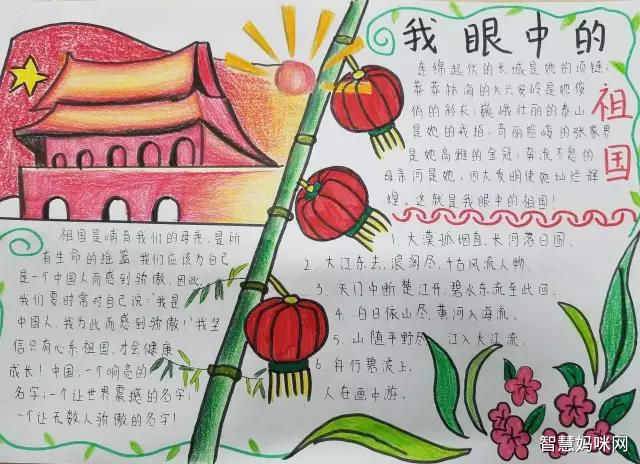 我眼中的
祖国
连绵起伏的长城是她的项链;
莽莽林海的大兴安岭是她俊
俏的彩衣;巍峨壮丽的泰山
是她的戒指;奇丽险峻的张家界
是她高雅的金冠;奔流不息的
母亲河是她,四大发明使她灿烂辉
煌。这就是我眼中的祖国!
祖国是哺育我们的母亲,是所
有生命的摇篮,我们应该为自己
是一个中国人而感到骄傲。因此,
我们要时常对自己说:“我是
中国人,我为此而感到骄傲!”我坚
信只有心系祖国,才会健康
成长!中国,一个响亮的
名字;一个让世界震撼的名字;
一个让无数人骄傲的名字!
1.大漠孤烟直,长河落日圆。
2.大江东去,浪淘尽,千古风流人物。
3.天门中断楚江开,碧水东流至此回。
4.白日依山尽,黄河入海流。
5.山随平野尽,江入大江流。
6.舟行碧波上,
人在画中游。
智慧妈咪网